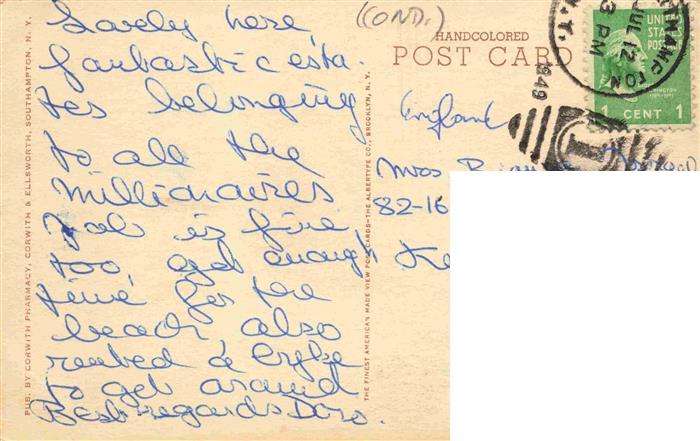 Lovely here,
fantastic esta-
tes belonging
to all the
millionaires
Job is fine,
too, get enough
time for the
beach, also
rented a
to get around
Best regards Doro.
(COND.)
HANDCOLORED
POST CARD
England
82-16
PUB. BY CORWITH PHARMACY, CORWITH & ELLSWORTH, SOUTHAMPTON, N. Y.
THE FINEST AMERICAN MADE VIEW POST CARDS—THE ALBERTYPE CO., BROOKLYN, N. Y.
JUL 12
3 PM
1949
N.Y.
UNITED
STATES
POSTAGE
1 CENT 1